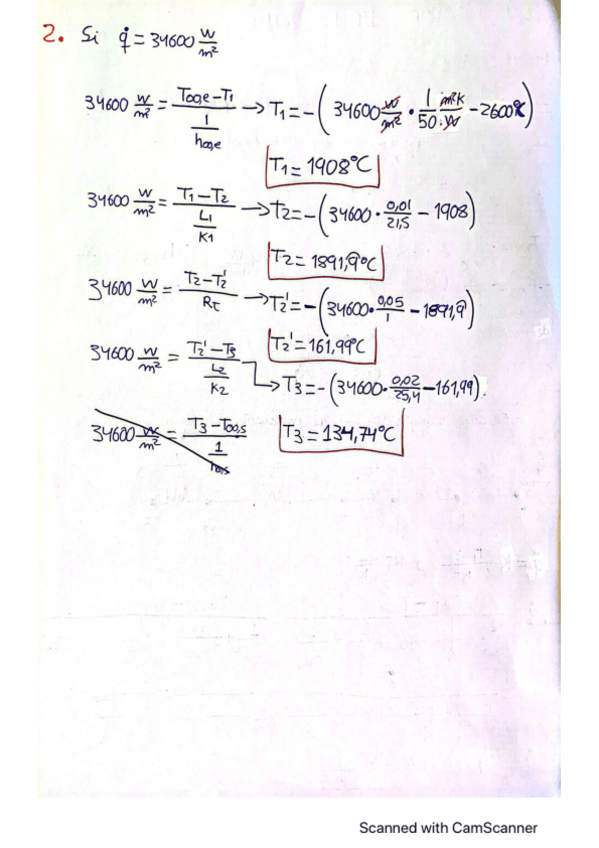 2. Si q̇ = 34600 W/m²
34600 W/m² = (T∞,e - T1)/(1/h∞,e) → T1 = -(34600 W/m² · 1/50 m²K/W - 2600K)
T1 = 1908°C
34600 W/m² = (T1 - T2)/(L1/K1) → T2 = -(34600 · 0,01/21,5 - 1908)
T2 = 1891,9°C
34600 W/m² = (T2 - T2')/Rτ → T2' = -(34600 · 0,05/1 - 1891,9)
T2' = 161,99°C
34600 W/m² = (T2' - T3)/(L2/K2) → T3 = -(34600 · 0,02/25,4 - 161,99)
34600 W/m² = (T3 - T∞,s)/(1/h∞,s) T3 = 134,74°C
Scanned with CamScanner